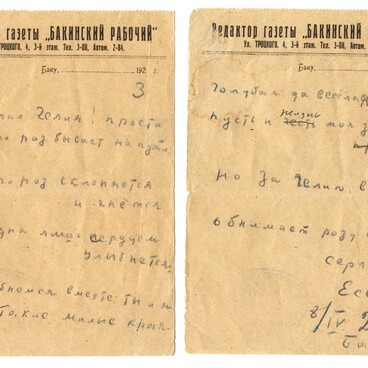 газеты „БАКИНСКИЙ РАБОЧИЙ"
ТРОЦКОГО, 4, 3-й этаж. Тел. 3-60, Автом. 2-84.
Баку, 192 г.
3
Гелия! прости
роз бывает на пути
роз склоняется
и гнется
одна лишь сердцем
улыбнется
вместе ты и я
такие милые края
Редактор газеты „БАКИНСКИЙ
Ул. ТРОЦКОГО, 4, 3-й этаж. Тел. 3-60, Автом.
Баку,
голубая да весёлая
пусть и жизнь моя
но за Гелию в
обнимает роз
Серг
Есе
8/IV 2
Ба